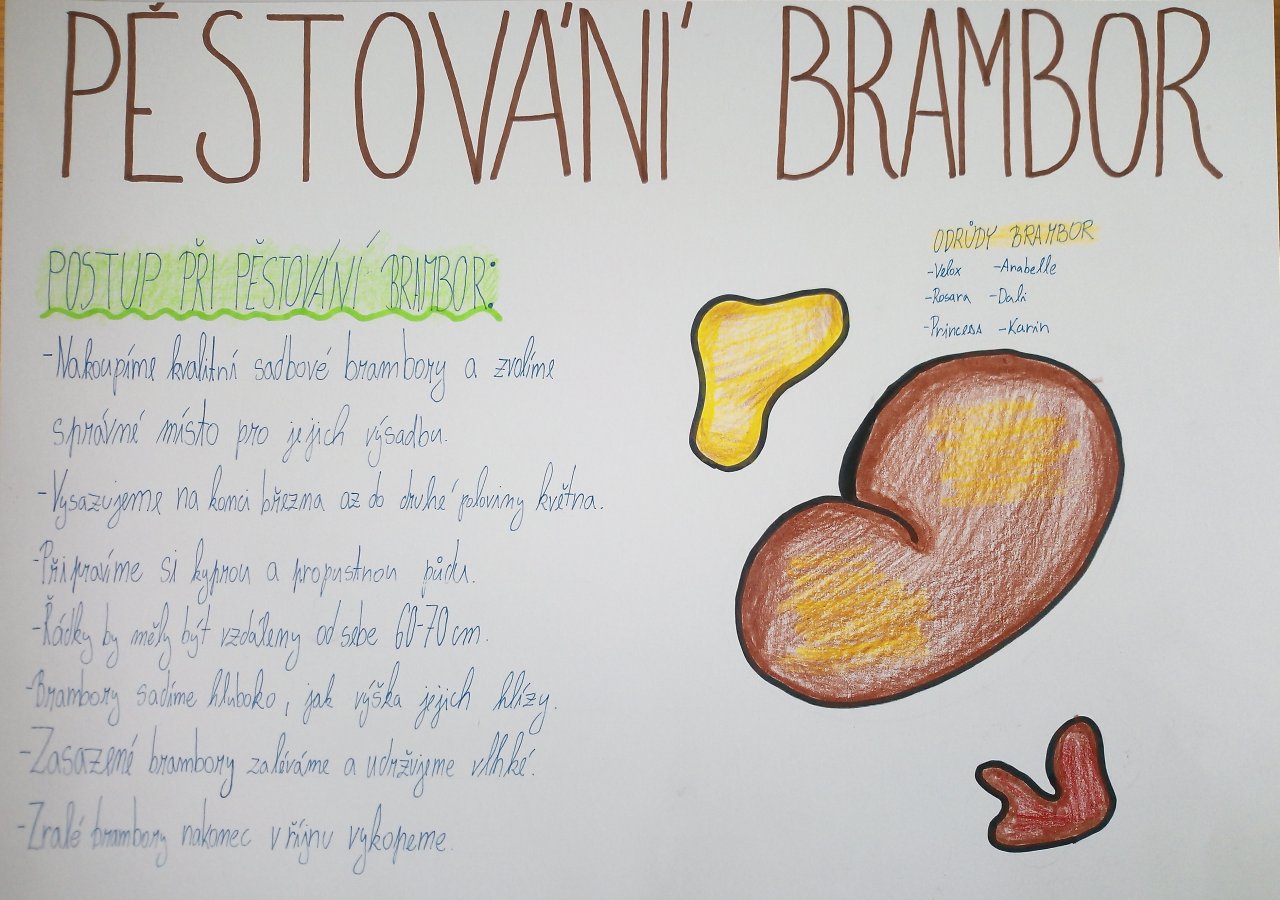 PĚSTOVÁNÍ BRAMBOR
POSTUP PŘI PĚSTOVÁNÍ BRAMBOR:
-Nakoupíme kvalitní sadbové brambory a zvolíme
správné místo pro jejich výsadbu.
-Vysazujeme na konci března až do druhé poloviny května.
-Připravíme si kyprou a propustnou půdu.
-Řádky by měly být vzdáleny od sebe 60-70 cm.
-Brambory sadíme hluboko, jak výška jejich hlízy.
-Zasazené brambory zaléváme a udržujeme vlhké.
-Zralé brambory nakonec v říjnu vykopeme.
ODRŮDY BRAMBOR
-Velox -Anabelle
-Rosara -Dali
-Princess -Karin